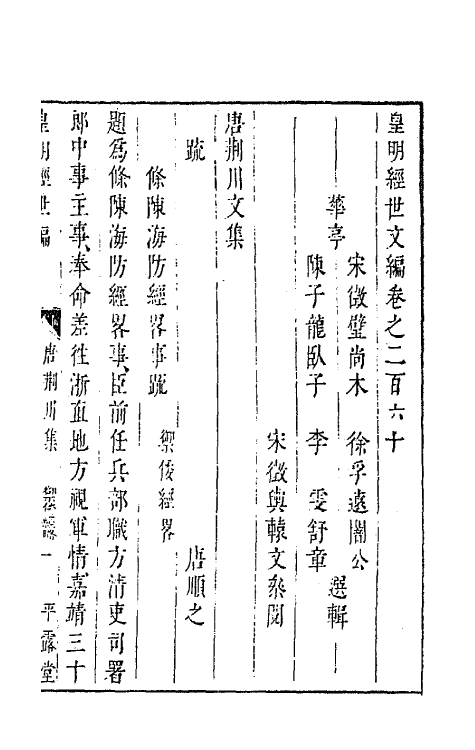 皇明經世文編卷之二百六十
宋徵璧尚木 徐孚遠闇公
華亭 選輯
陳子龍臥子 李 雯舒章
宋徵輿轅文叅閱
唐荆川文集
疏 唐順之
條陳海防經畧事疏 禦倭經畧
題爲條陳海防經畧事臣前任兵部職方清吏司署
郎中事主事奉命差往浙直地方視軍情嘉靖三十
皇明經世編 唐荆川集 禦倭 一 平露堂